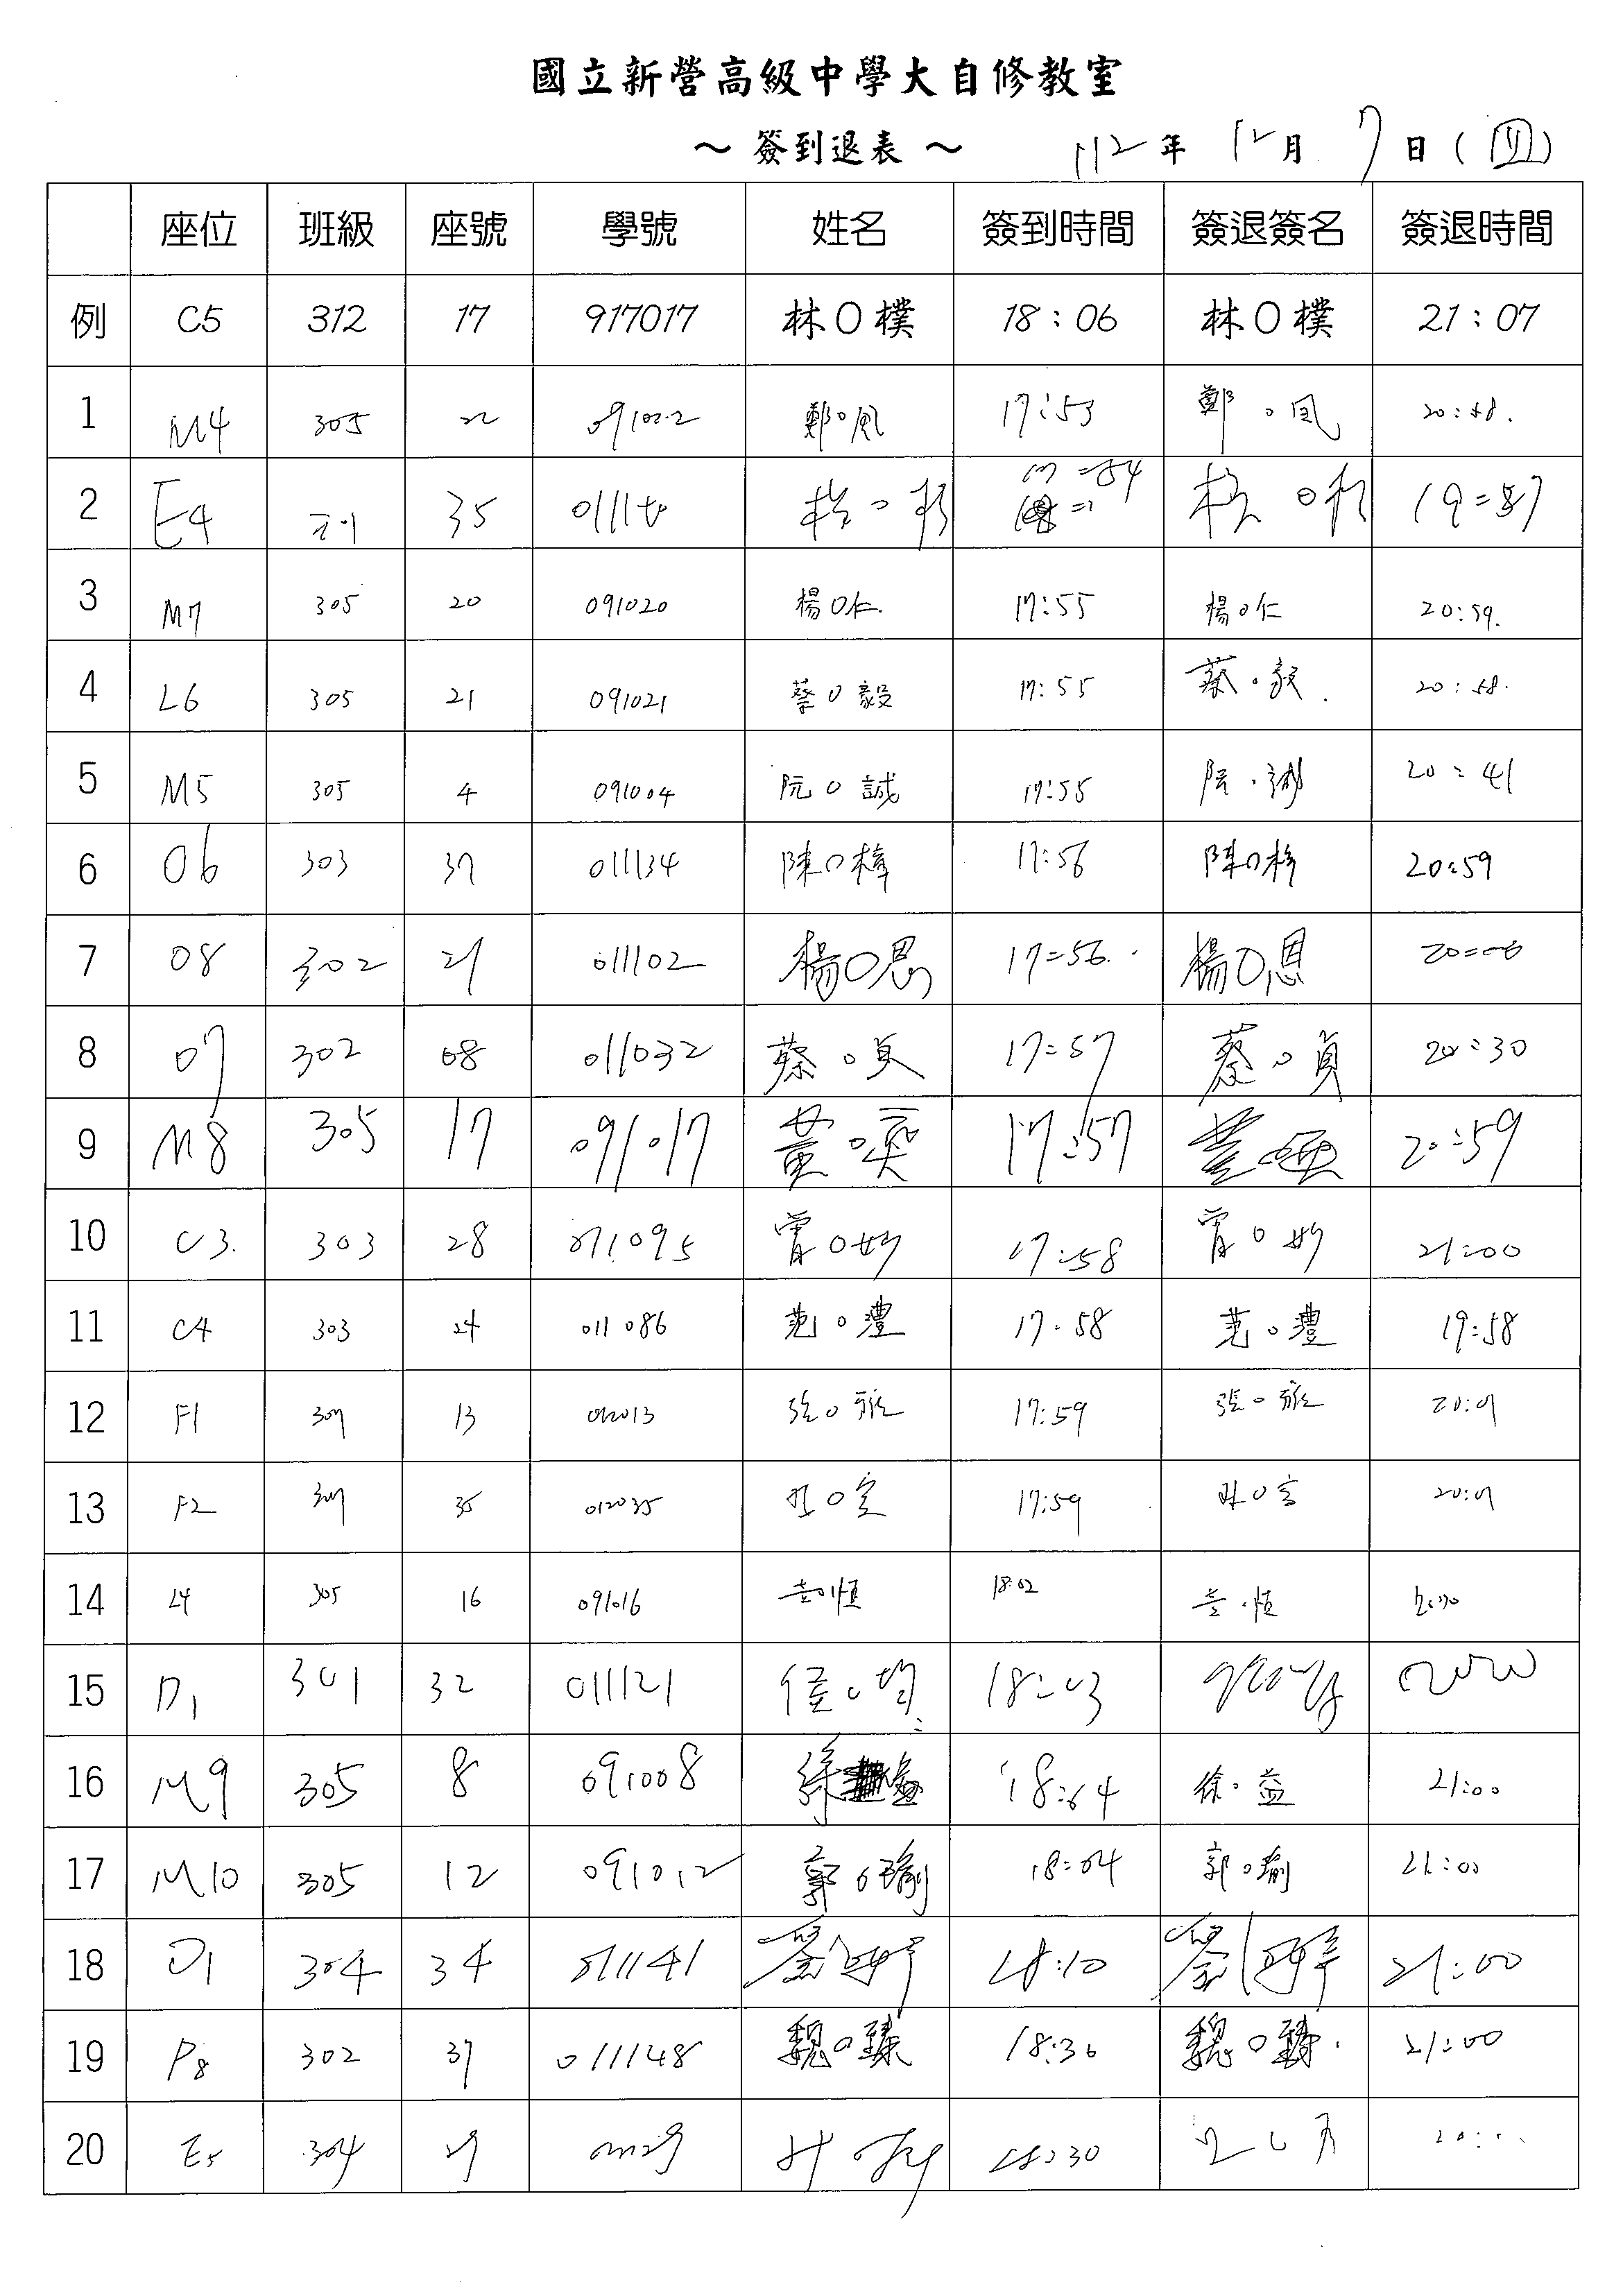 國立新營高級中學大自修教室
～ 簽到退表 ～ 112 年 12 月 7 日 ( 四 )
座位 班級 座號 學號 姓名 簽到時間 簽退簽名 簽退時間
例 C5 312 17 917017 林O樸 18:06 林O樸 21:07
1 M4 305 22 091022 鄭O風 17:53 鄭O風 20:58.
2 E4 35 17=54 19=57
3 M7 305 20 091020 楊O仁. 17:55 楊O仁 20:59.
4 L6 305 21 091021 蔡O毅 17:55 蔡O毅. 20:58.
5 M5 305 4 091004 阮O誠 17:55 阮O誠 20:41
6 O6 303 37 011134 陳O樺 17:56 陳O樺 20:59
7 O8 302 21 011102 楊O恩 17=56. 楊O恩
8 O7 302 08 011032 蔡O貞 17=57 蔡O貞 20:30
9 M8 305 17 091017 黃O奕 17:57 20:59
10 C3. 303 28 011095 17:58 21:00
11 C4 303 24 011086 范O澧 17:58 范O澧 19:58
12 F1 307 13 012013 張O雅 17:59 張O雅
13 F2 307 35 012035 17:59
14 L4 305 16 091016 黃O恒 18:02 黃O恒
15 D1 301 32 011121 侯O均 18:03
16 M9 305 8 091008 徐 18:04 徐O益 21:00
17 M10 305 12 091012 郭O瑜 18:04 郭O瑜 21:00
18 304 34 011141 18:10 21:00
19 P8 302 37 011148 魏O臻 18:30 魏O臻. 21:00
20 E5 304 18:30